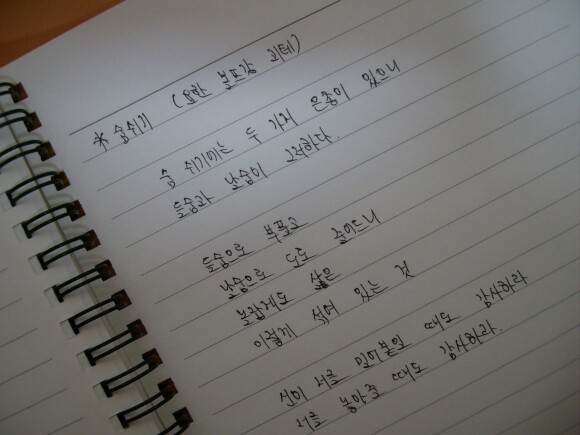 * 숨쉬기 (요한 볼프강 괴테)
숨 쉬기에는 두 가지 은총이 있으니
들숨과 날숨이 그러하다.
들숨으로 부풀고
날숨으로 도로 줄어드니
놀랍게도 삶은
이렇게 섞여 있는 것
신이 너를 밀어붙일 때도 감사하라
너를 놓아줄 때도 감사하라.